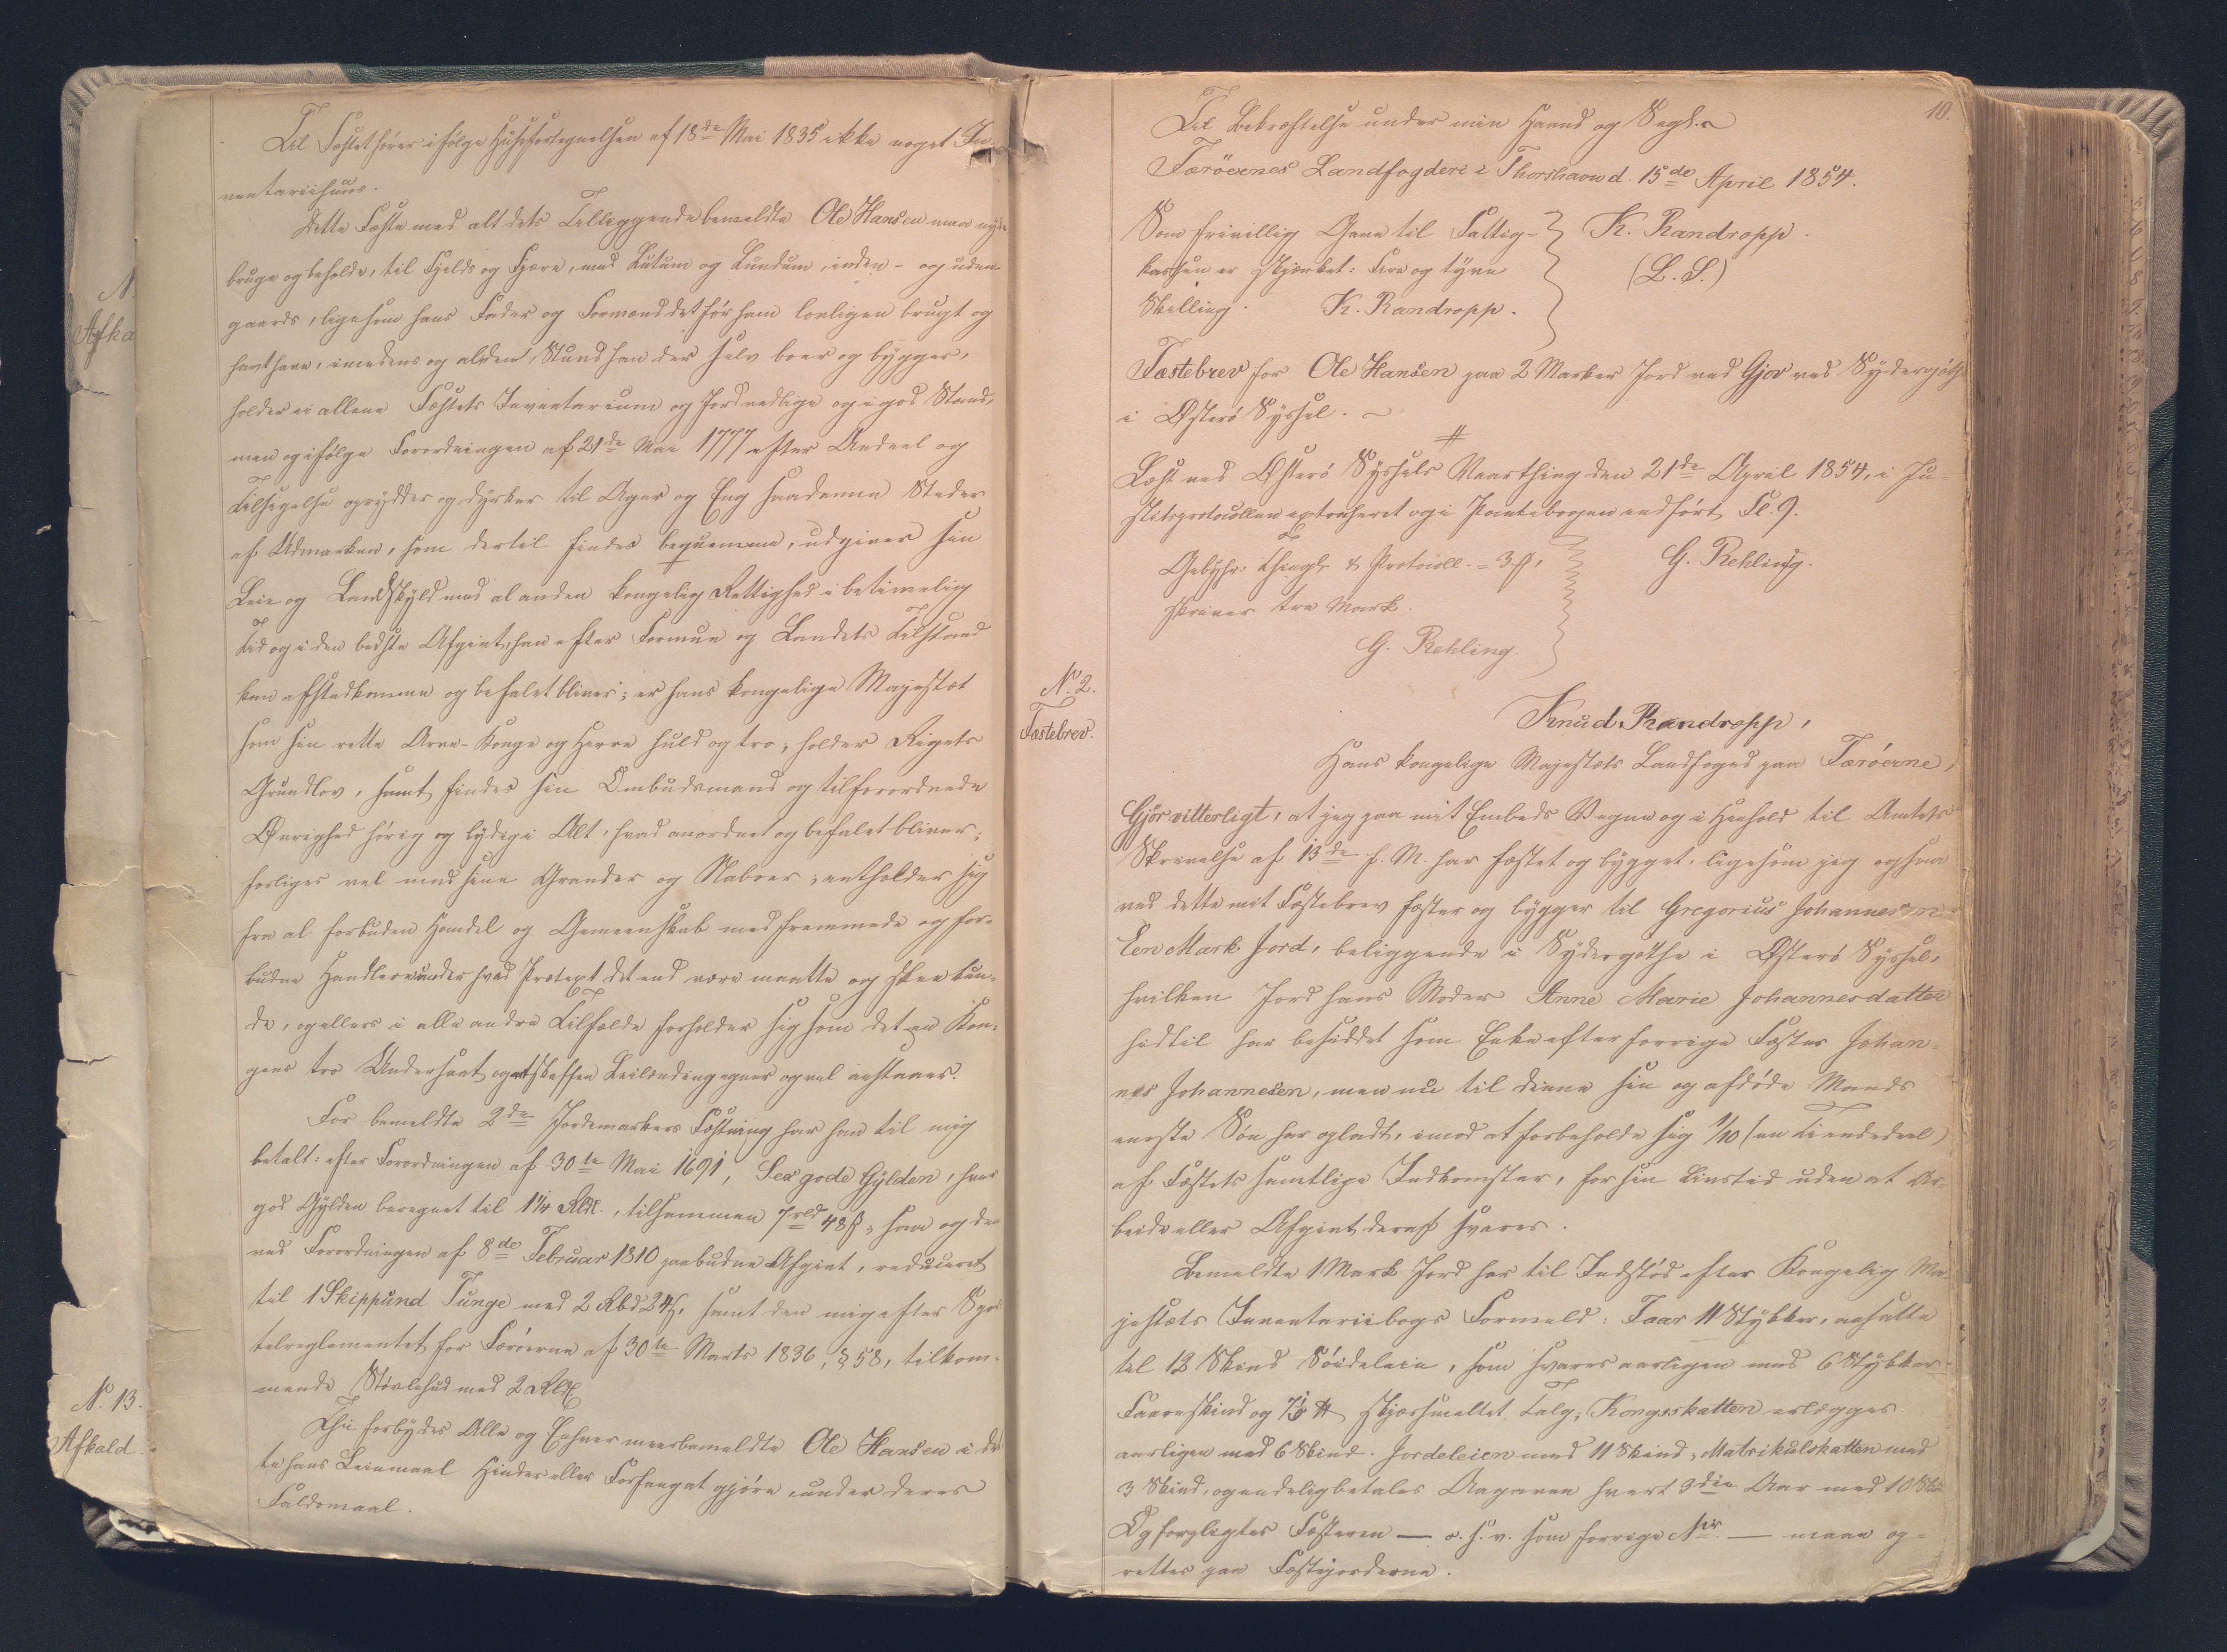 N.
Afka
N. 13.
Afkald.
Til Fæstet hører ifølge Huusfortegnelsen af 18de Mai 1835 ikke noget In-
ventariihuus.
Dette Fæste med alt dets Tilliggende bemeldte Ole Hansen maa nyde
bruge og beholde, til Fjelds og Fjære, med Lutum og Lundum, inden- og uden-
gaards, ligesom hans Fader og Formænd det før ham lovligen brugt og
havt have, imedens og alden Stund han der selv boer og bygger,
holder ei allene Fæstets Inventarium og Jord vedlige og i god Stand,
men og ifølge Forordningen af 21de Mai 1777 efter Andeel og
Tilsigelse oprydder og dyrker til Ager og Eng saadanne Steder
af Udmarken, som dertil findes beqvemme, udgiver sin
Leie og Landskyld med al anden kongelig Rettighed i betimelig
Tid og i den bedste Afgivt, han efter Formue og Landets Tilstand
kan afstedkomme og befalet bliver; er hans kongelige Majestæt
som sin rette Arve-Konge og Herre huld og tro, holder Rigets
Grundlov, samt findes sin Ombudsmand og tilforordnede
Øvrighed hørig og lydig i Alt, hvad anordnet og befalet bliver;
forliges vel med sine Grander og Naboer; entholder sig
fra al forbuden Handel og Gemeenskab med fremmede og for-
budne Handlere under hvad Prætext det end være maatte og skee kun-
de, og ellers i alle andre Tilfælde forholder sig som det en Kon-
gens tro Undersaat og retskaffen Leilænding egner og vel anstaaer.
For bemeldte 2de Jordemarkers Fæstning har han til mig
betalt: efter Forordningen af 30te Mai 1691, Sex gode Gylden, hver
god Gylden beregnet til 1 1/4 Rbd., tilsammen 7rbd 48ß, som og den
ved Forordningen af 8de Februar 1810 paabudne Afgivt, reduceret
til 1 Skippund Tunge med 2 Rbd 24ß, samt den mig efter Spor-
telreglementet for Færøerne af 30te Marts 1836, § 58, tilkom-
mende Støvlehud med 2 Rbd.
Thi forbydes Alle og Enhver meerbemeldte Ole Hansen i det-
te hans Leiemaal Hinder eller Forfang at gjøre, under deres
Faldsmaal.
10.
Til Bekræftelse under min Haand og Segl.
Færøernes Landfogderi i Thorshavn d. 15de April 1854.
Som frivillig Gave til Fattig- K. Randropp.
kassen er skjænket: Fire og tyve (L. S.)
Skilling. K. Randropp.
Fæstebrev for Ole Hansen paa 2 Marker Jord ved Gjov ved Sydergøthe
i Østerø Syssel.
Læst ved Østerø Syssels Vaarthing den 21de April 1854, i Ju-
stitsprotocollen extraheret og i Pantebogen indført, Fl. 9.
Gebyhr: Thingl. & Protocoll. = 3ß, G. Rehling.
skriver tre Mark.
G. Rehling.
N. 2.
Fæstebrev.
Knud Randropp,
Hans kongelige Majestæts Landfoged paa Færøerne,
Gjør vitterligt, at jeg paa mit Embeds Vegne og i Henhold til Amtets
Skrivelse af 13de f. M. har fæstet og bygget, ligesom jeg ogsaa
ved dette mit Fæstebrev fæster og bygger til Gregorius Johannesen
Een Mark Jord, beliggende i Sydergøthe i Østerø Syssel,
hvilken Jord hans Moder Anne Marie Johannesdatter
hidtil har besiddet som Enke efter forrige Fæster Johan-
nes Johannesen, men nu til denne sin og afdøde Mands
eneste Søn har opladt, imod at forbeholde sig 1/10 (en Tiendedeel)
af Fæstets samtlige Indkomster, for sin Livstid uden at Ar-
beide eller Afgivt deraf svares.
Bemeldte 1 Mark Jord har til Indstød efter Kongelig Ma-
jestæts Inventariibogs Formeld: Faar 11 Stykker, ansatte
til 12 Skind Søideleie, som svares aarligen med 6 Stykker
Faareskind og 7 1/5 ℔ skjærsmeltet Talg; Kongsskatten erlægges
aarligen med 6 Skind. Jordeleien med 11 Skind, Matrikulskatten med
3 Skind, og endelig betales Aagaven hvert 3die Aar med 10 Skd.
Og forpligtes Fæsteren — o. s. v. som forrige Nr. — maae op-
rettes paa Fæstejorderne.